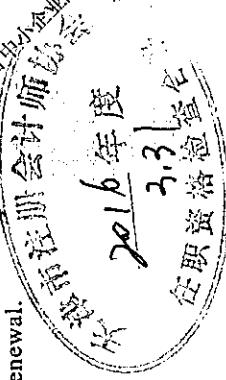 enewal.
中小企业
市注册会计师协会
2016年度
3.31
任职资格检查合